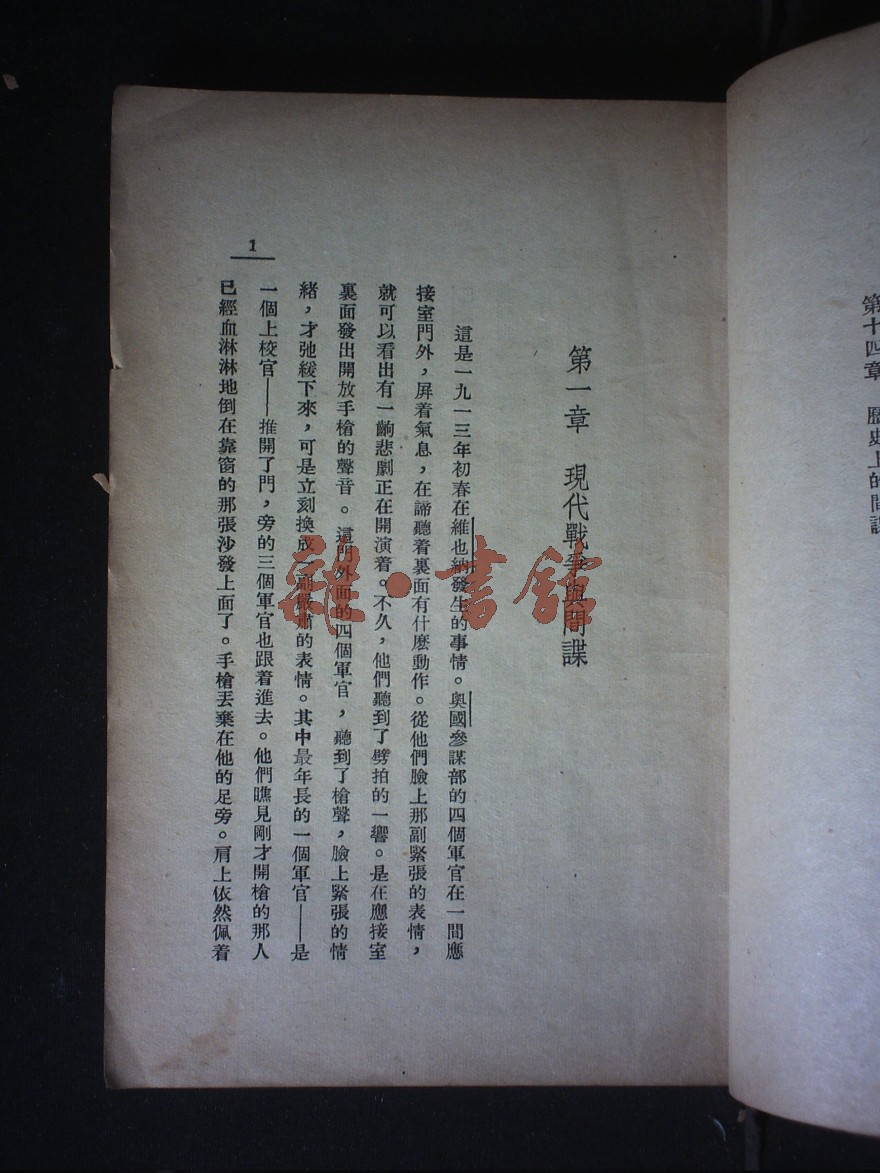 第十四章　歷史上的間諜
第一章　現代戰爭與間諜
這是一九一三年初春在維也納發生的事情。奧國參謀部的四個軍官在一間應
接室門外，屏着氣息，在諦聽着裏面有什麼動作。從他們臉上那副緊張的表情，
就可以看出有一齣悲劇正在開演着。不久，他們聽到了劈拍的一響。是在應接室
裏面發出開放手槍的聲音。這門外面的四個軍官，聽到了槍聲，臉上緊張的情
緒，才弛緩下來，可是立刻換成一副嚴肅的表情。其中最年長的一個軍官——是
一個上校官——推開了門，旁的三個軍官也跟着進去。他們瞧見剛才開槍的那人
已經血淋淋地倒在靠窗的那張沙發上面了。手槍丟棄在他的足旁。肩上依然佩着
1
雜·書館